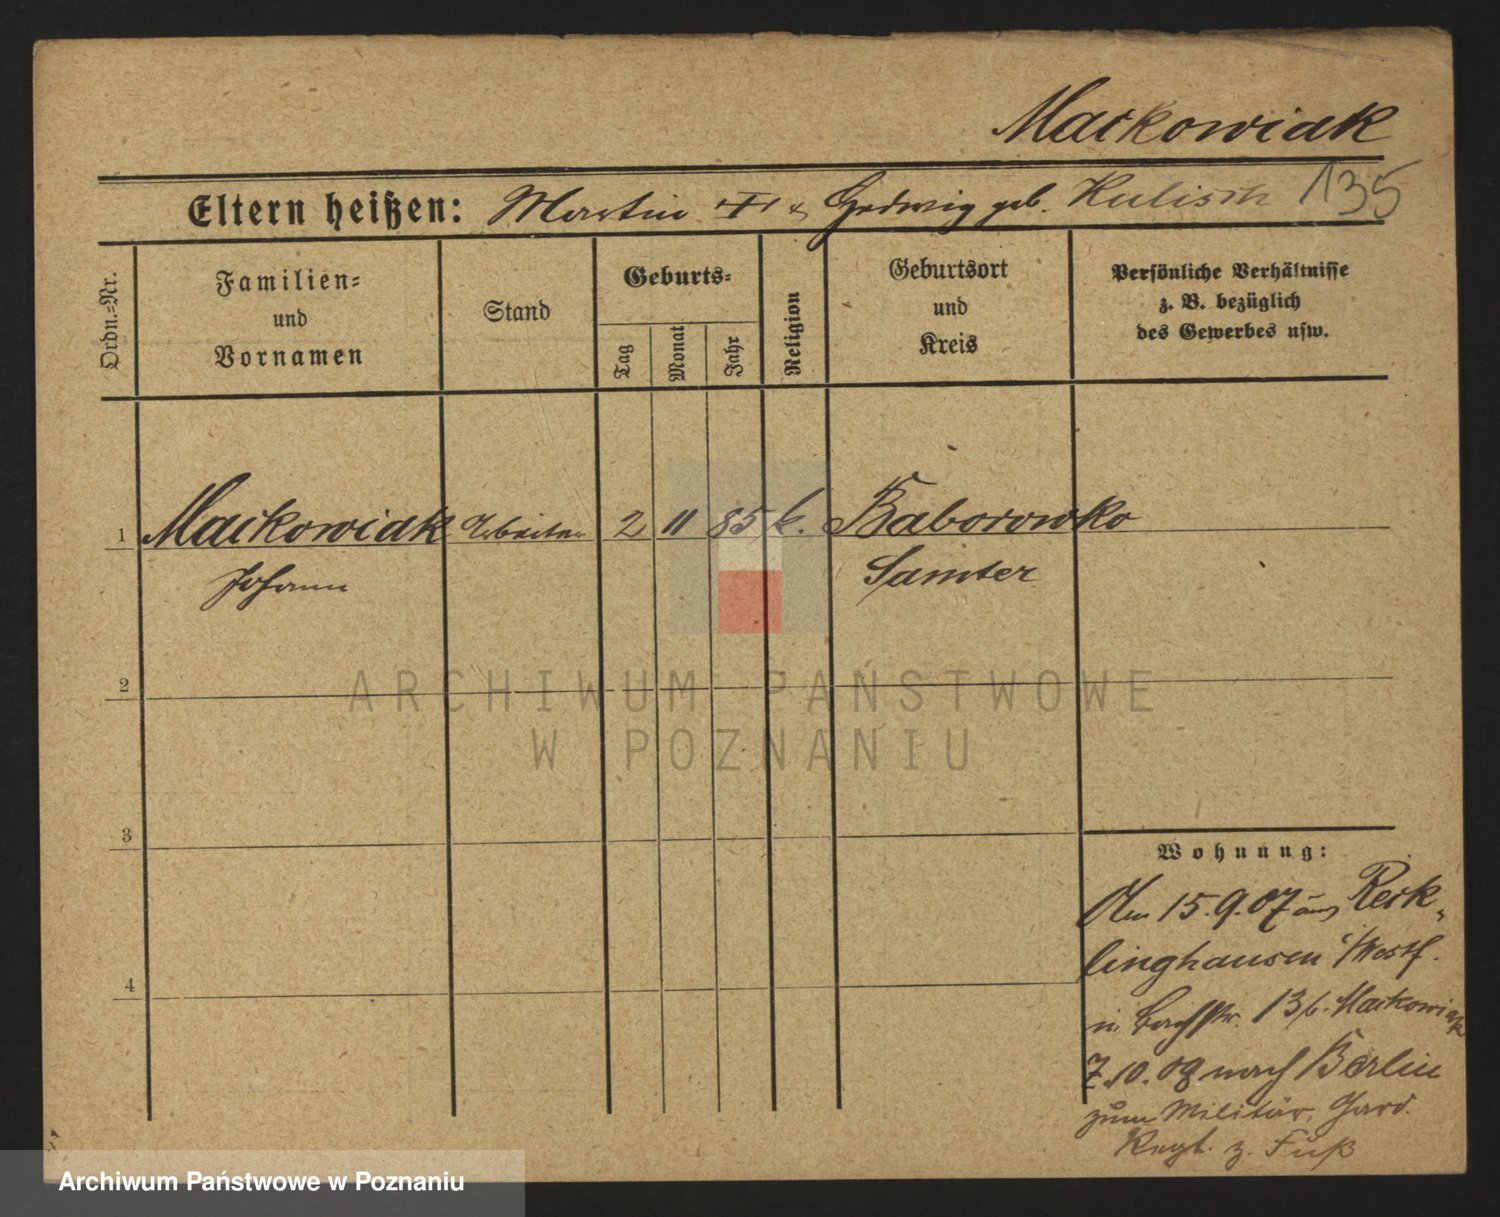 Maćkowiak
Eltern heißen: Martin & Hedwig geb. Kulisch 135
Ordn.-Nr.
Familien- und Vornamen
Stand
Geburts-
Tag
Monat
Jahr
Religion
Geburtsort und Kreis
Persönliche Verhältnisse
z. B. bezüglich
des Gewerbes usw.
1 Maćkowiak Arbeiter 2 11 85 k. Baborowko
Johann Samter
2
3
4
Wohnung:
15.9.07 aus Reck-
linghausen i/Westf.
n. 13 b. Maćkowiak
7.10.08 nach Berlin
zum Militär, Gard.
Regt. z. Fuß
ARCHIWUM PAŃSTWOWE
W POZNANIU
Archiwum Państwowe w Poznaniu